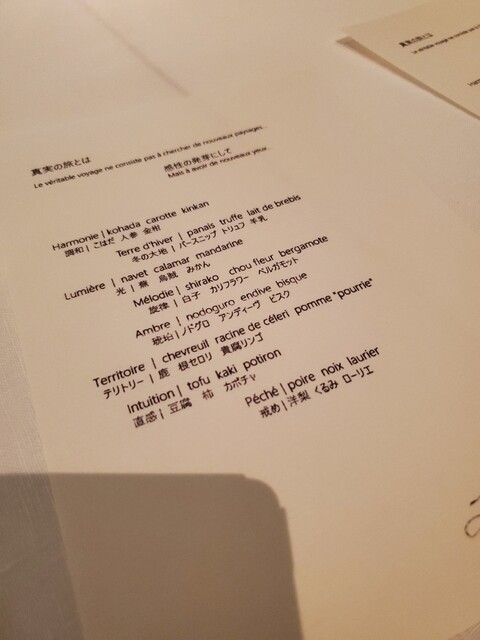 真実の旅とは
Le véritable voyage ne consiste pas à chercher de nouveaux paysages...
感性の発芽にして
Mais à avoir de nouveaux yeux...
Harmonie | kohada carotte kinkan
調和 | こはだ 人参 金柑
Terre d'hiver | panais truffe lait de brebis
冬の大地 | パースニップ トリュフ 羊乳
Lumière | navet calamar mandarine
光 | 蕪 烏賊 みかん
Mélodie | shirako chou fleur bergamote
旋律 | 白子 カリフラワー ベルガモット
Ambre | nodoguro endive bisque
琥珀 | ノドグロ アンディーヴ ビスク
Territoire | chevreuil racine de céleri pomme "pourrie"
テリトリー | 鹿 根セロリ 貴腐リンゴ
Intuition | tofu kaki potiron
直感 | 豆腐 柿 カボチャ
Péché | poire noix laurier
戒め | 洋梨 くるみ ローリエ
真実の旅とは
Le véritable voyage ne consiste pas à